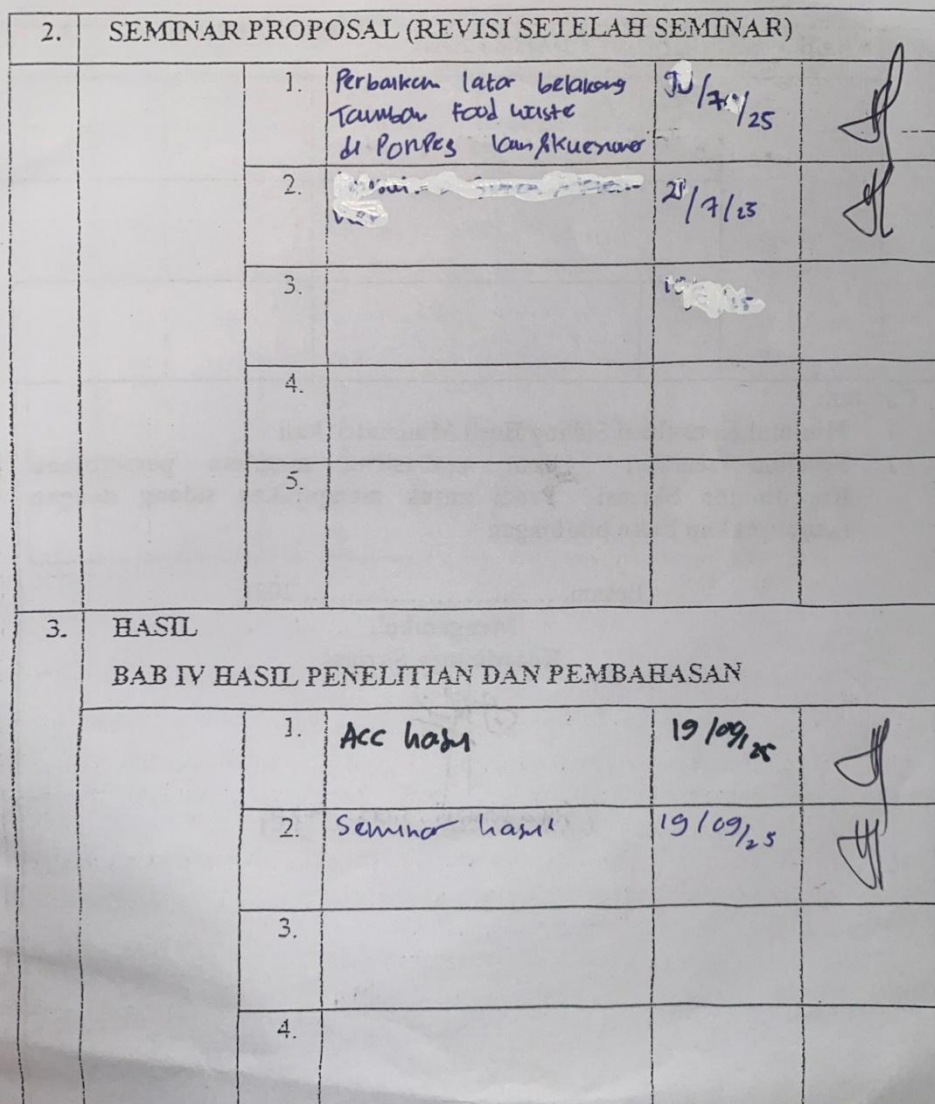 2. SEMINAR PROPOSAL (REVISI SETELAH SEMINAR)
1. Perbaikan latar belakang
food waste
di PONPES
/25
2.
21/7/25
3.
4.
5.
3. HASIL
BAB IV HASIL PENELITIAN DAN PEMBAHASAN
1. Acc hasil 19/09/25
2. Seminar hasil 19/09/25
3.
4.